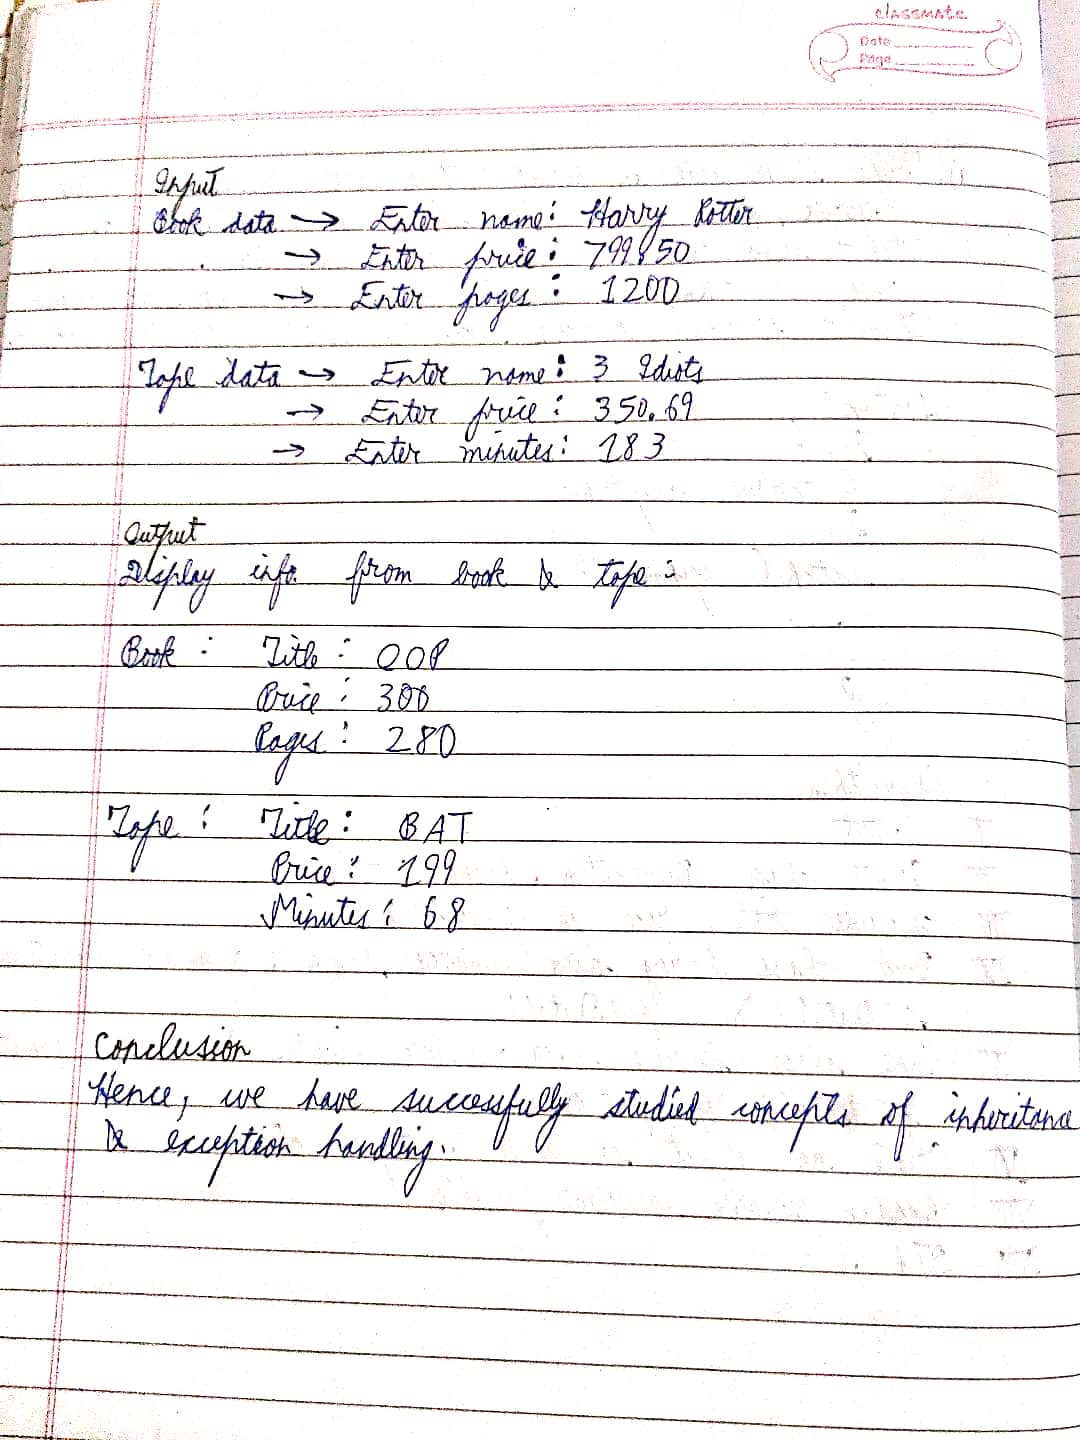 classmate
Date
Page
Input
Book data → Enter name: Harry Potter
→ Enter price: 799.50
→ Enter pages: 1200
Tape data → Enter name: 3 Idiots
→ Enter price: 350.69
→ Enter minutes: 183
Output
Display info from book & tape:
Book: Title: OOP
Price: 300
Pages: 280
Tape: Title: BAT
Price: 199
Minutes: 68
Conclusion
Hence, we have successfully studied concepts of inheritance
& exception handling.